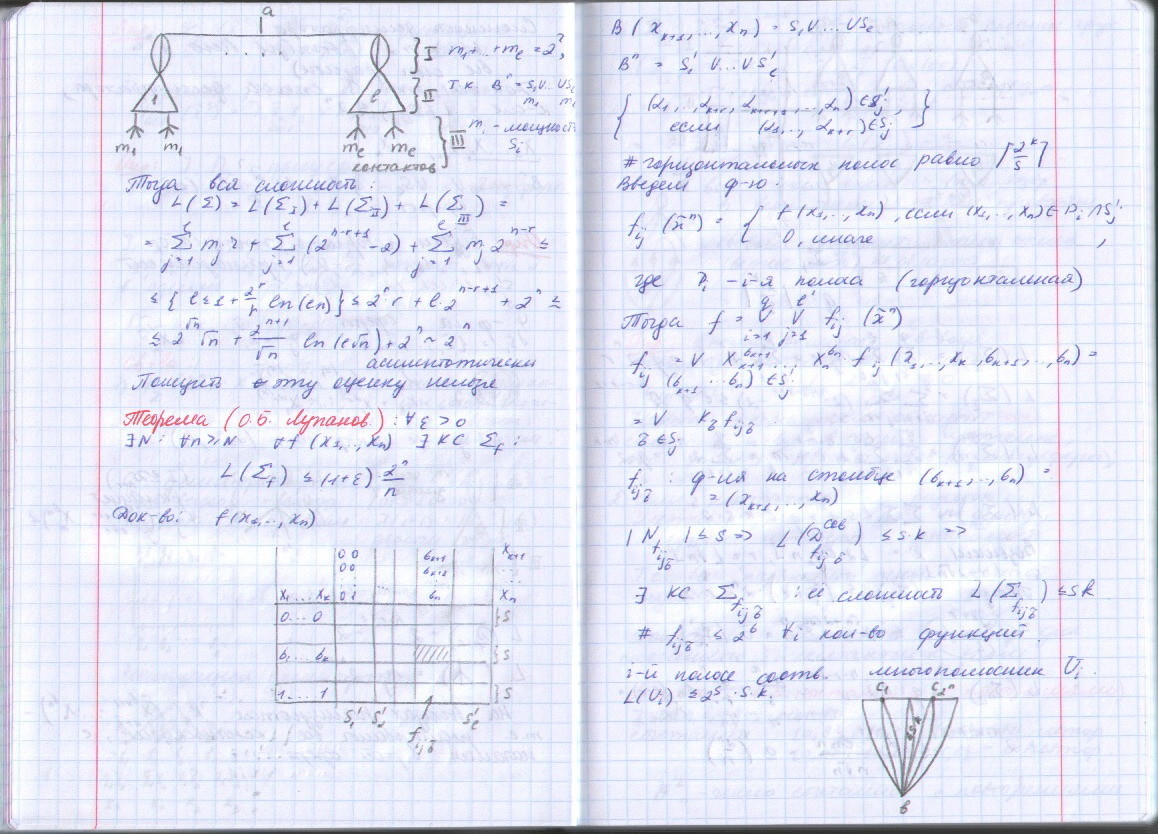 a
} I m₁+...+m_ℓ = 2^r,
} II т.к. Bⁿ = S₁∪...∪S_ℓ
1 ℓ m₁ m_ℓ
m₁ m₁ m_ℓ m_ℓ } III m_i - мощность S_i
контактов
Тогда вся сложность:
L(Σ) = L(Σ_I) + L(Σ_II) + L(Σ_III) =
= Σ_{j=1}^ℓ m_j r + Σ_{j=1}^ℓ (2^{n-r+1} - 2) + Σ_{j=1}^ℓ m_j 2^{n-r} ≤
≤ { ℓ ≤ 1 + 2^r/r ln(er) } ≤ 2^r · r + ℓ · 2^{n-r+1} + 2ⁿ ≤
≤ 2^{√n} √n + 2^{n+1}/√n ln(e√n) + 2ⁿ ~ 2ⁿ
асимптотически
Понизить эту оценку нельзя
Теорема (О.Б. Лупанов): ∀ε > 0
∃N: ∀n>N ∀f(x₁,..,xₙ) ∃ КС Σ_f :
L(Σ_f) ≤ (1+ε) · 2ⁿ/n
Док-во: f(x₁,..,xₙ)
0 0 б_{k+1} x_{k+1}
0 0 б_{k+2} ...
x₁....x_k 0 1 ... б_n x_n
0....0 }S
б₁...б_k }S
1....1 }S
S₁' S₂' S_ℓ'
f_{ijб̃}
B(x_{k+1},...,xₙ) = S₁∪...∪S_ℓ
Bⁿ = S₁'∪...∪S_ℓ'
{ (α₁,..,α_{k+1},α_{k+2},...,αₙ) ∈ S_j',
если (α₁,..,α_{k+1}) ∈ S_j }
# горизонтальных полос равно ⌈2^k/S⌉
Введем ф-ю.
f_{ij}(x̃ⁿ) = { f(x₁,..,xₙ), если (x₁,..,xₙ) ∈ P_i ∩ S_j'
0, иначе ,
где P_i - i-я полоса (горизонтальная)
Тогда f = ∨_{i=1}^q ∨_{j=1}^ℓ f_{ij}(x̃ⁿ)
f_{ij} = ∨_{(б_{k+1}...б_n) ∈ S_j} x_{k+1}^{б_{k+1}} ... x_n^{б_n} f_{ij}(x₁,..,x_k, б_{k+1},..,б_n) =
= ∨_{б̃∈S_j} K_б̃ f_{ijб̃}
f_{ijб̃} : ф-ия на столбце (б_{k+1},..,б_n) =
= (x_{k+1},..,xₙ)
|N_{f_{ijб̃}}| ≤ S ⇒ L(D^{сов}_{f_{ijб̃}}) ≤ S·k ⇒
∃ КС Σ_{f_{ijб̃}} : её сложность L(Σ_{f_{ijб̃}}) ≤ Sk
# f_{ijб̃} ≤ 2^S ∀i кол-во функций.
i-й полосе соотв. многополюсник U_i.
L(U_i) ≤ 2^S · S·k.
C₁ C_{2ⁿ}
≤Sk
B